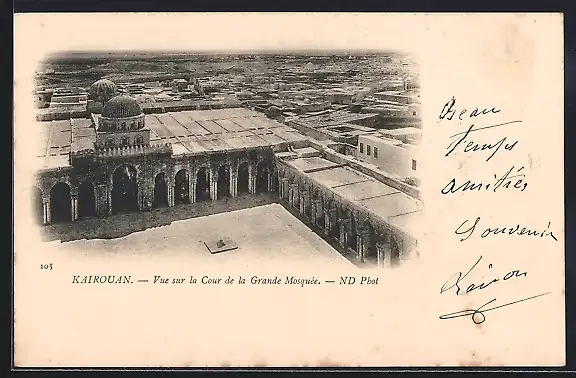 105
KAIROUAN. — Vue sur la Cour de la Grande Mosquée. — ND Phot
Beau
Temps
Amitiés
Souvenir